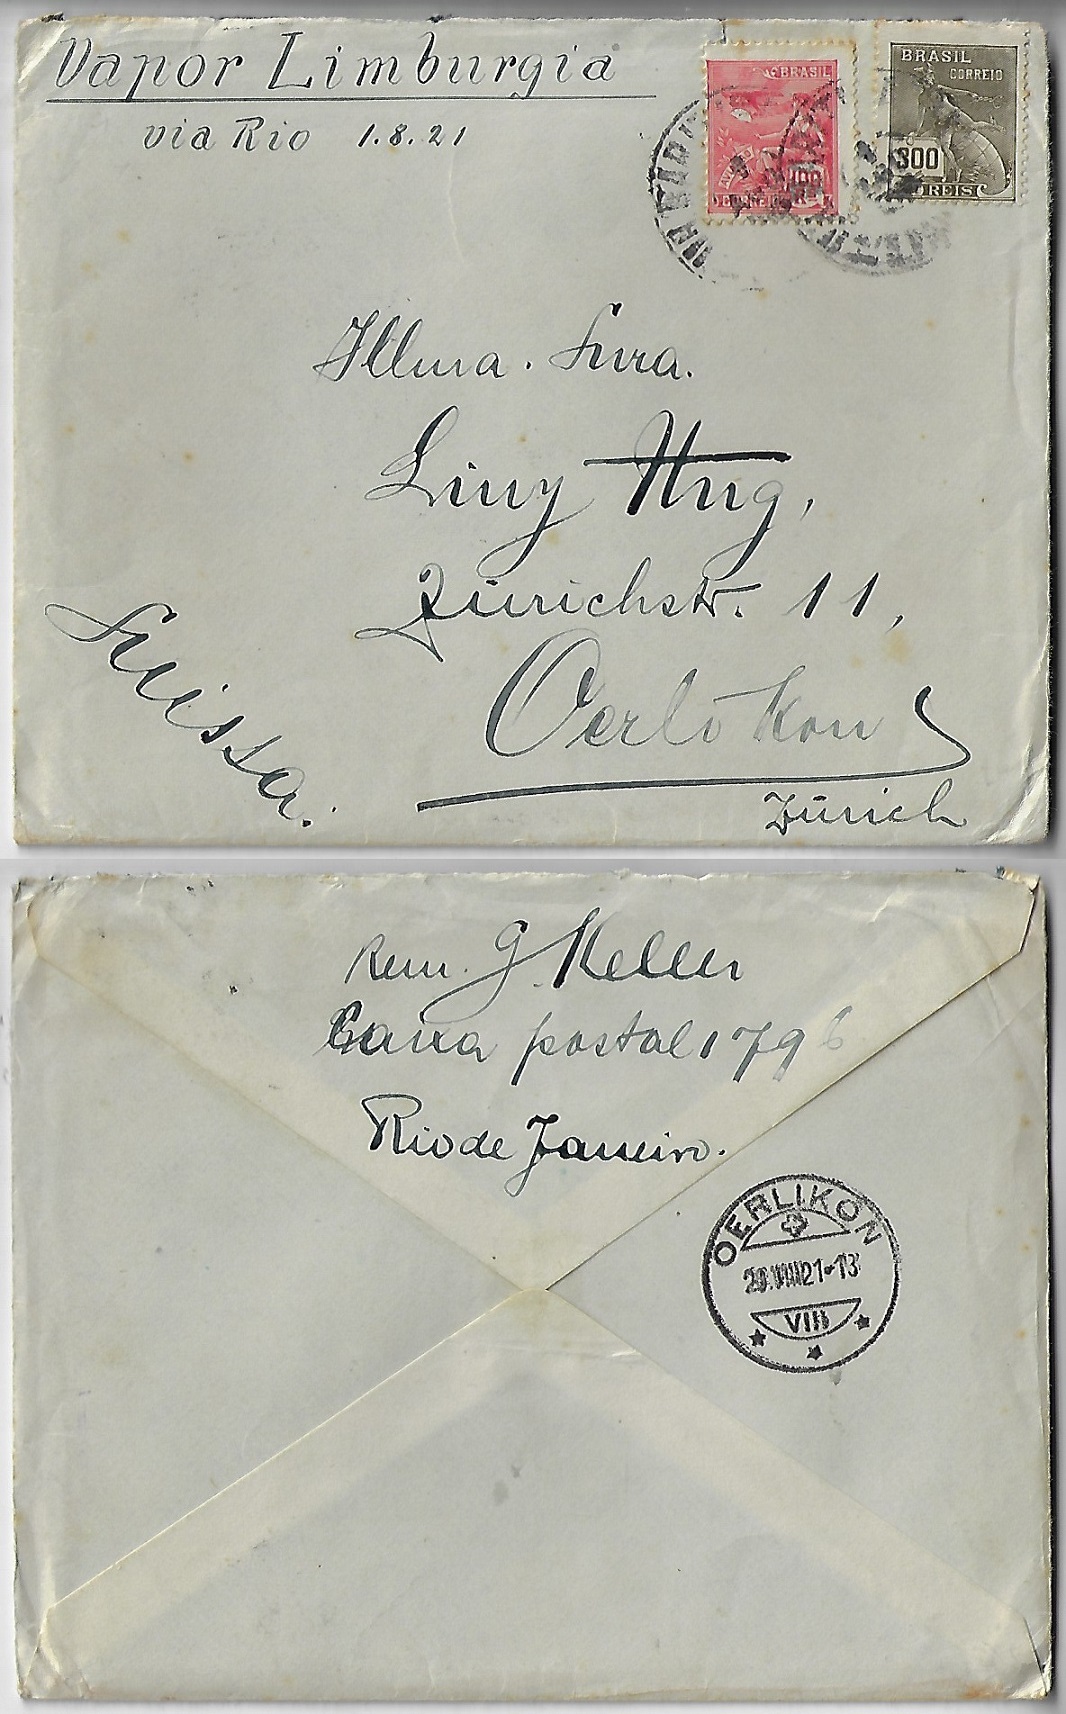 Vapor Limburgia
via Rio 1.8.21
BRASIL
AVIAÇÃO
100
CORREIO
BRASIL
CORREIO
300
REIS
Illma. Snra.
Liny Hug,
Zürichstr. 11,
Oerlikon
Zürich
Suissa.
Rem. G. Keller
Caixa postal 1796
Rio de Janeiro.
OERLIKON
20.VIII.21-13
VIII